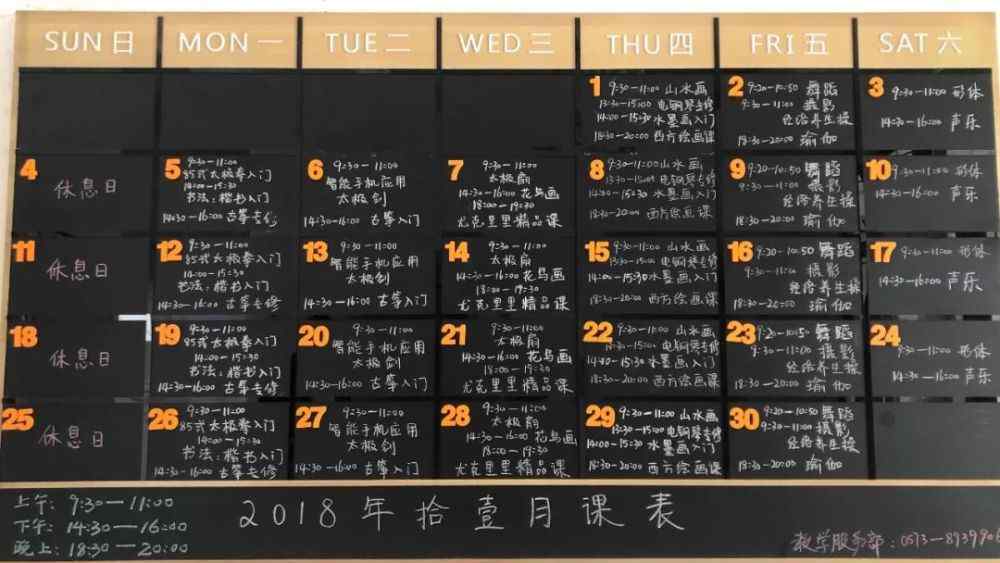 SUN日 MON一 TUE二 WED三 THU四 FRI五 SAT六
1
9:30—11:00 山水画
13:30—15:00 电钢琴专修
14:00—15:30 水墨画入门
18:30—20:00 西方绘画课
2
9:20—10:50 舞蹈
9:30—11:00 摄影
经络养生操
18:30—20:00 瑜伽
3
9:30—11:00 形体
14:30—16:00 声乐
4
休息日
5
9:30—11:00
85式太极拳入门
14:00—15:30
书法:楷书入门
14:30—16:00 古筝专修
6
9:30—11:00
智能手机应用
太极剑
14:30—16:00 古筝入门
7
9:30—11:00
太极扇
14:30—16:00 花鸟画
18:00—19:30
尤克里里精品课
8
9:30—11:00 山水画
13:30—15:00 电钢琴专修
14:00—15:30 水墨画入门
18:30—20:00 西方绘画课
9
9:20—10:50 舞蹈
9:30—11:00 摄影
经络养生操
18:30—20:00 瑜伽
10
9:30—11:00 形体
14:30—16:00 声乐
11
休息日
12
9:30—11:00
85式太极拳入门
14:00—15:30
书法:楷书入门
14:30—16:00 古筝专修
13
9:30—11:00
智能手机应用
太极剑
14:30—16:00 古筝入门
14
9:30—11:00
太极扇
14:30—16:00 花鸟画
18:00—19:30
尤克里里精品课
15
9:30—11:00 山水画
13:30—15:00 电钢琴专修
14:00—15:30 水墨画入门
18:30—20:00 西方绘画课
16
9:20—10:50 舞蹈
9:30—11:00 摄影
经络养生操
18:30—20:00 瑜伽
17
9:30—11:00 形体
14:30—16:00 声乐
18
休息日
19
9:30—11:00
85式太极拳入门
14:00—15:30
书法:楷书入门
14:30—16:00 古筝专修
20
9:30—11:00
智能手机应用
太极剑
14:30—16:00 古筝入门
21
9:30—11:00
太极扇
14:30—16:00 花鸟画
18:00—19:30
尤克里里精品课
22
9:30—11:00 山水画
13:30—15:00 电钢琴专修
14:00—15:30 水墨画入门
18:30—20:00 西方绘画课
23
9:20—10:50 舞蹈
9:30—11:00 摄影
经络养生操
18:30—20:00 瑜伽
24
9:30—11:00 形体
14:30—16:00 声乐
25
休息日
26
9:30—11:00
85式太极拳入门
14:00—15:30
书法:楷书入门
14:30—16:00 古筝专修
27
9:30—11:00
智能手机应用
太极剑
14:30—16:00 古筝入门
28
9:30—11:00
太极扇
14:30—16:00 花鸟画
18:00—19:30
尤克里里精品课
29
9:30—11:00 山水画
13:30—15:00 电钢琴专修
14:00—15:30 水墨画入门
18:30—20:00 西方绘画课
30
9:20—10:50 舞蹈
9:30—11:00 摄影
经络养生操
18:30—20:00 瑜伽
上午: 9:30—11:00
下午: 14:30—16:00
晚上: 18:30—20:00
2018年拾壹月课表
教学服务部: 0573—